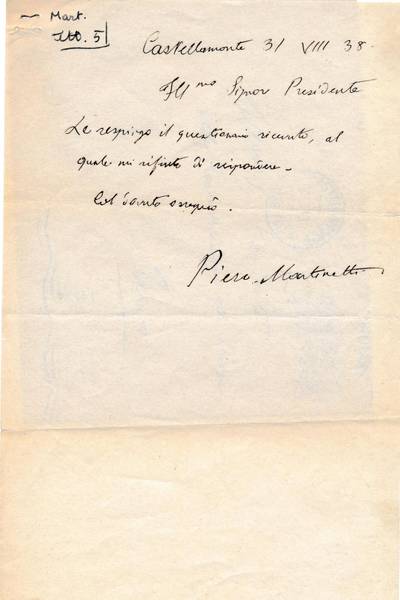 ~ Mart.
III. 5
Castellamonte 31 VIII 38.
Ill mo Signor Presidente
Le respingo il questionario ricevuto, al
quale mi rifiuto di rispondere.
Col dovuto ossequio.
Piero Martinetti